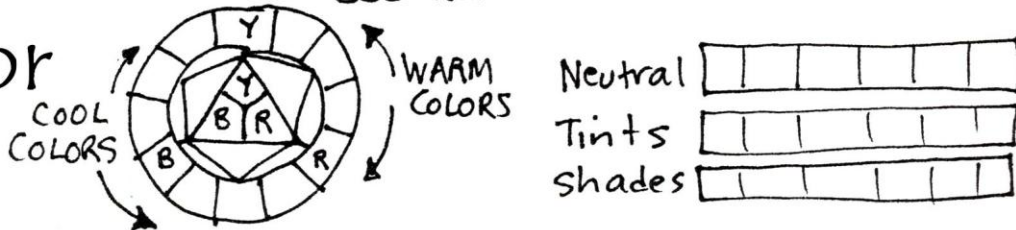 or
Y
COOL
COLORS
Y
B R
B
R
WARM
COLORS
Neutral
Tints
Shades